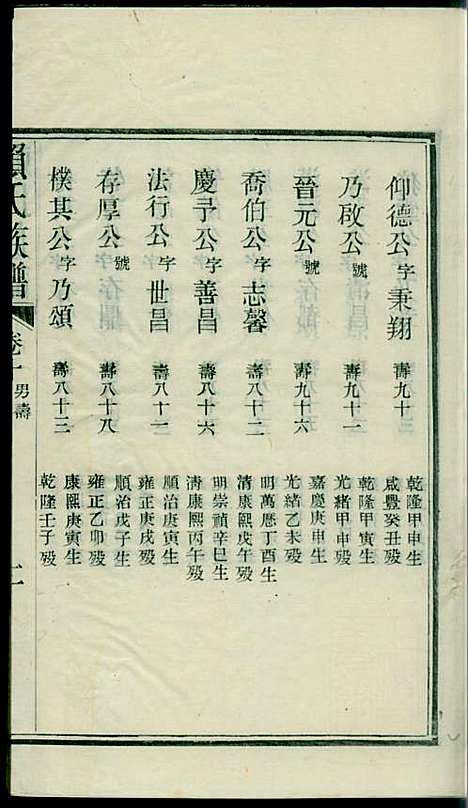 仰德公字秉翔 壽九十 乾隆甲申生 咸豐癸丑歿
乃啟公號 壽九十一 乾隆甲寅生 光緒甲申歿
晉元公號 壽九十六 嘉慶庚申生 光緒乙未歿
喬伯公字志馨 壽八十二 明萬歷丁酉生 清康熙戊午歿
慶予公字善昌 壽八十六 明崇禎辛巳生 清康熙丙午歿
法行公字世昌 壽八十一 順治庚寅生 雍正庚戌歿
存厚公號 壽八十八 順治戊子生 雍正乙卯歿
樸其公字乃頌 壽八十三 康熙庚寅生 乾隆壬子歿
賴氏族譜 卷 男壽 二